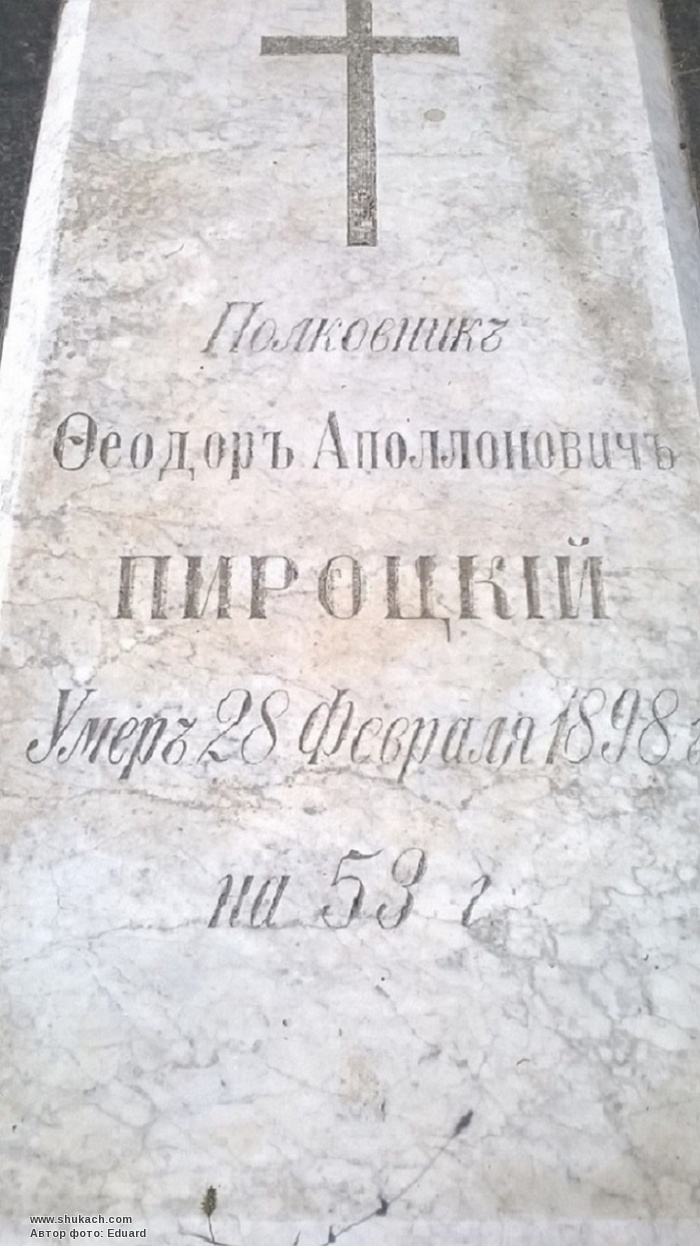 Полковникъ
Ѳеодоръ Аполлоновичъ
ПИРОЦКІЙ
Умеръ 28 Февраля 1898 г
на 53 г
www.shukach.com
Автор фото: Eduard